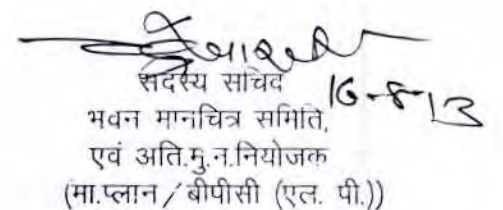 सदस्य सचिव
16-8-13
भवन मानचित्र समिति,
एवं अति.मु.न.नियोजक
(मा.प्लान/बीपीसी (एल. पी.))